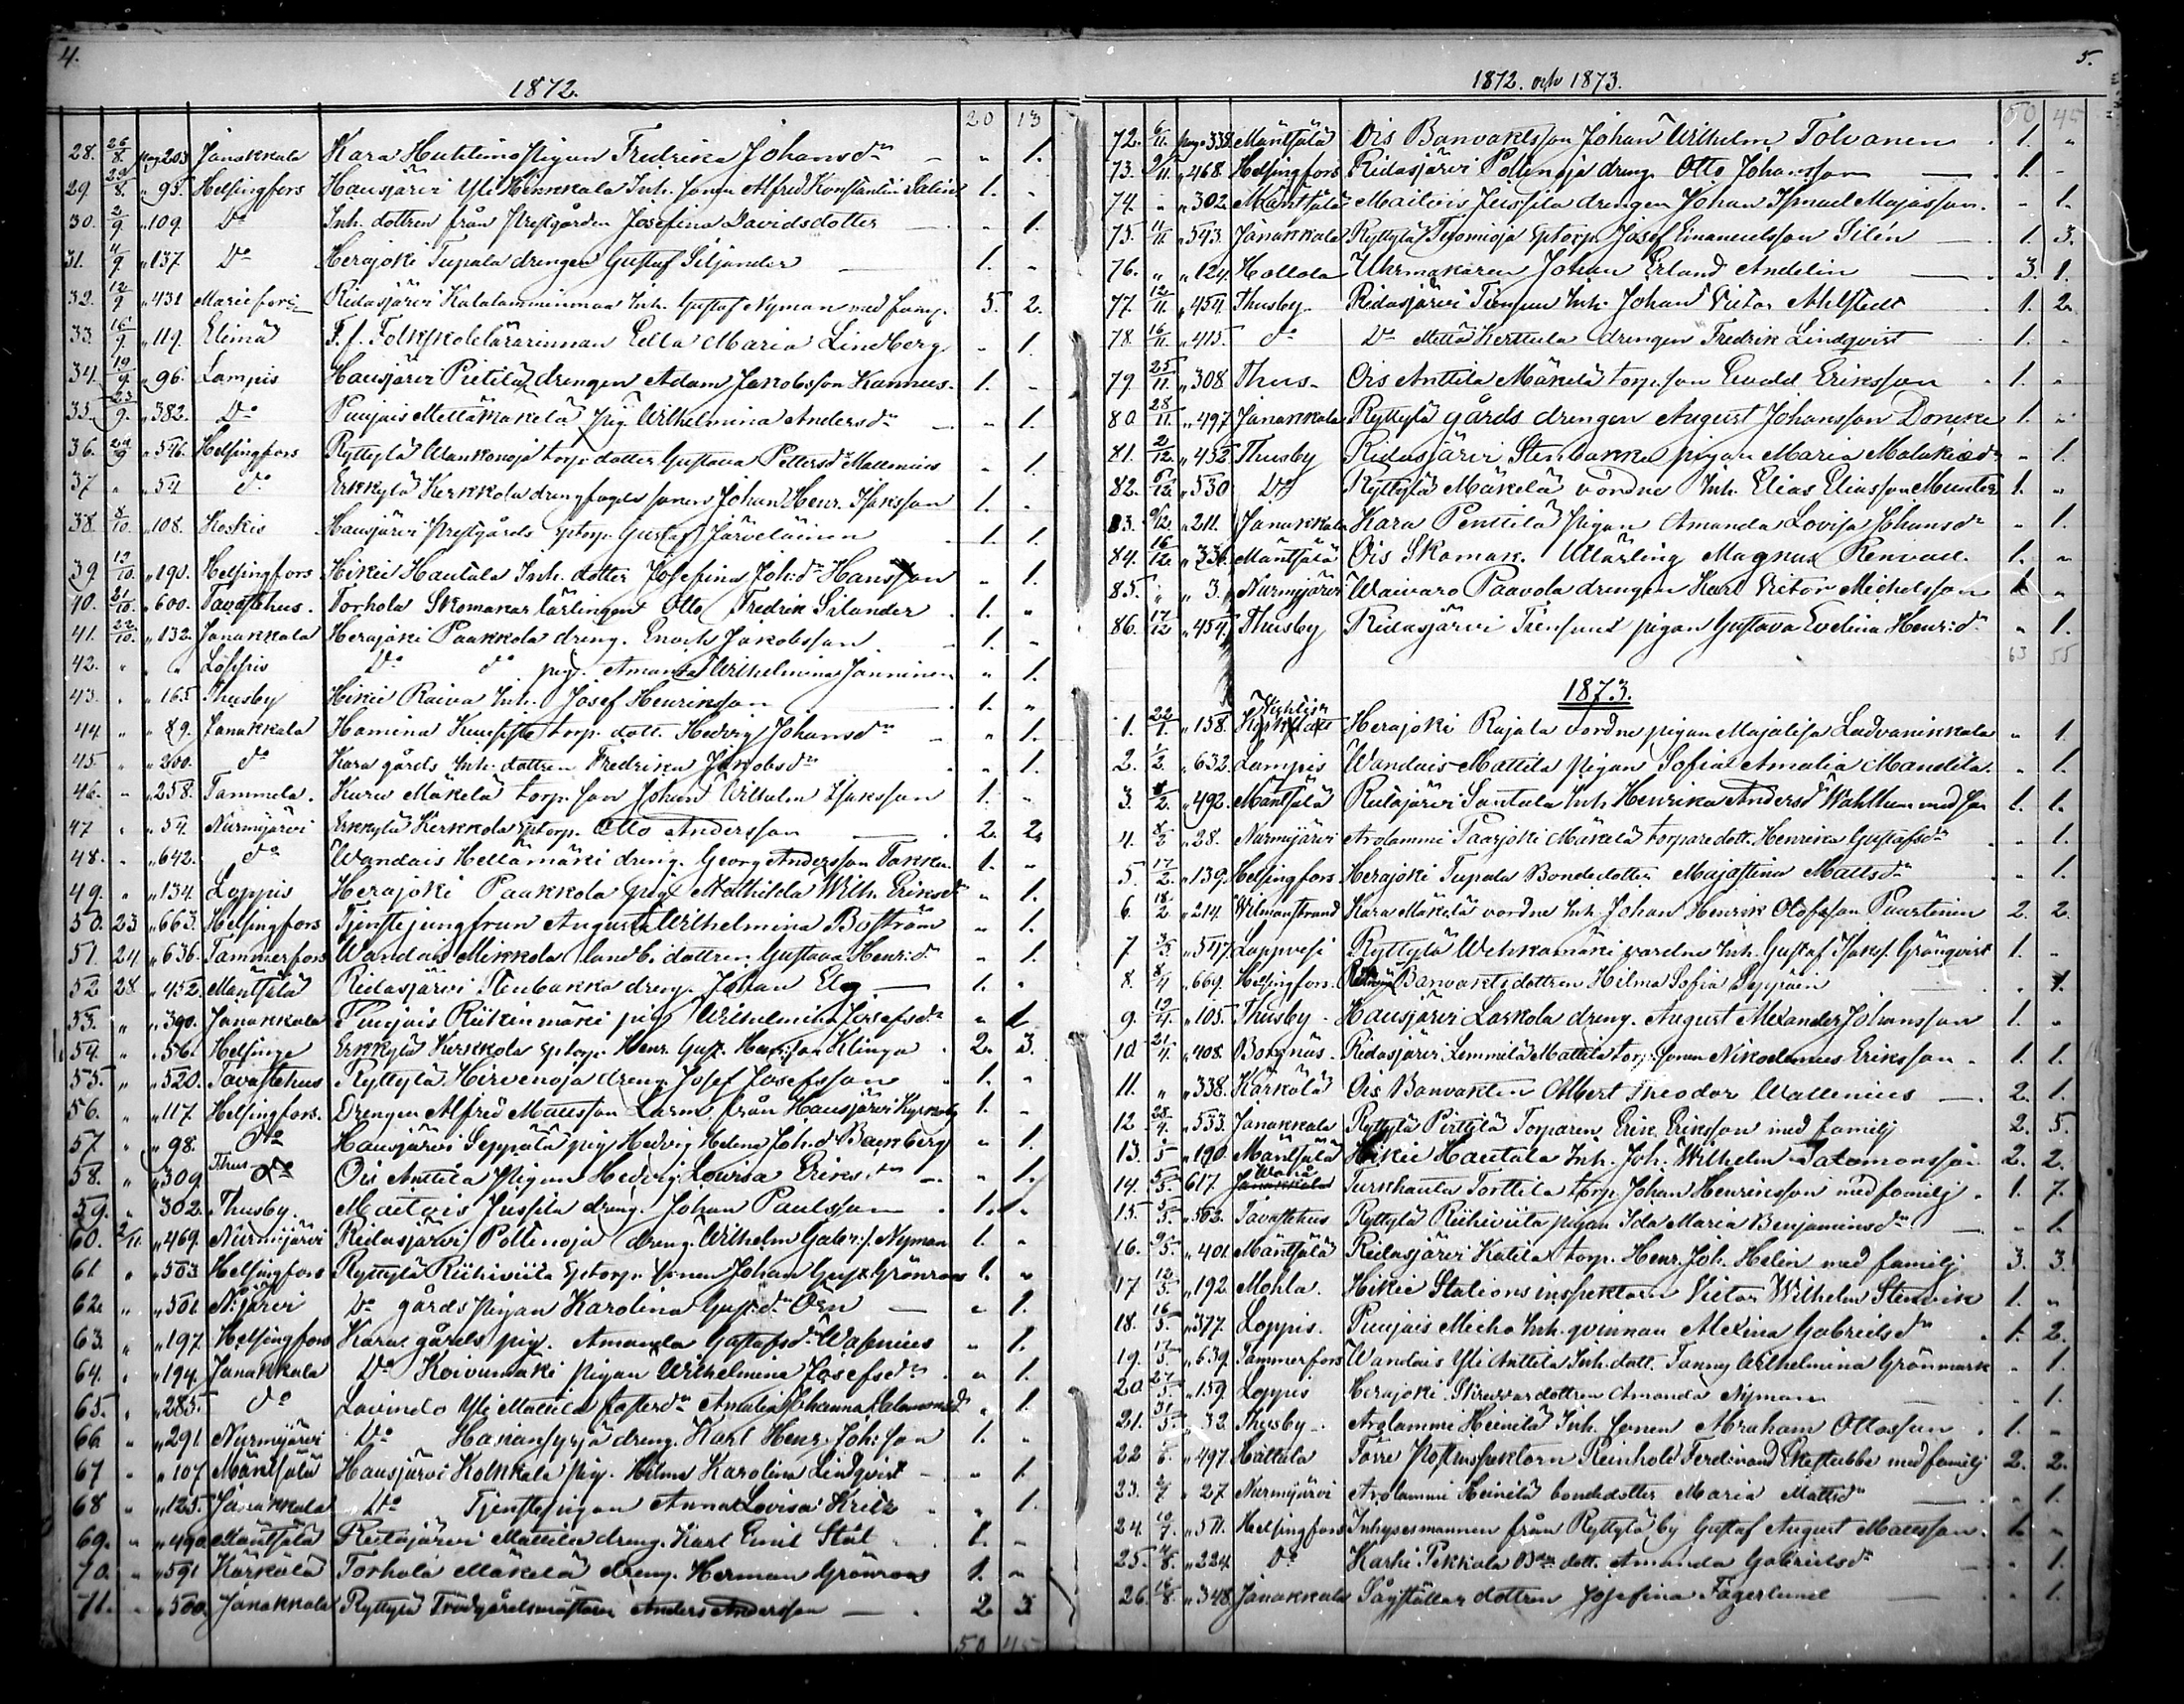 4.
1872.
20 13
28. 26/8. pag 203 Janakkala Kara Huhtimo pigan Fredrika Johansdr " 1.
29. 29/8. " 95. Helsingfors Hausjärvi Yli Hinkkala Inh. sonen Alfred Konstantin Salin 1. "
30. 2/9. " 109. Do Inh. dottren från Prestgården Josefina Davidsdotter " 1.
31. 4/9. " 137. Do Herajoki Tupala drengen Gustaf Siljander 1. "
32. 12/9 " 431 Mariefors Ridasjärvi Kalalamminmaa Inh. Gustaf Nyman med famj. 5. 2.
33. 16/9. " 119. Elimä F. f. Folkskolelärarinnan Edla Maria Lindberg " 1.
34. 19/9. " 96. Lampis Hausjärvi Pietilä drengen Adam Jakobsson Kannus. 1. "
35. 23/9. " 382. Do Puujais Mettämäkelä pig. Wilhelmina Andersdr " 1.
36. 24/9 " 546. Helsingfors Ryttylä Wankonoja torp. dotter Gustava Pettersdr Mallenius " 1.
37 " " 54 do Erkkylä Kerkkola drengfogds sonen Johan Henr. Isaksson 1. "
38. 8/10. " 108. Koskis Hausjärvi Prestgårds Sptorp. Gustaf Järveläinen 1. 1.
39. 15/10. " 190. Helsingfors Hikiä Hautala Inh. dotter Josefina Joh:dr Hansson " 1.
40. 21/10. " 600. Tavastehus. Torhola Skomakar lärlingen Otto Fredrik Silander 1. "
41. 22/10. " 132. Janakkala Herajoki Paakkola dreng. Enock Jakobsson 1. "
42. " " " Loppis Do do pig. Amanda Wilhelmina Janninen " 1.
43. " " 165. Thusby Hikiä Raiva Inh. Josef Henriksson 1. "
44 " " 89. Janakkala Hamina torp. dott. Hedvig Johansdr " 1.
45. " " 200. do Kara gårds Inh. dottren Fredrika Jakobsdr " 1.
46. " " 258. Tammela. Kuru Mäkelä torp. son Johan Wilhelm Isaksson 1. "
47 " " 54. Nurmijärvi Erkkylä Kerkkola Sptorp. Otto Andersson 2. 2.
48. " " 642. do Wandais Hellämäki dreng. Georg Andersson Takku 1. "
49. " " 134. Loppis Herajoki Paakkola pig. Mathilda Wilh. Eriksdr " 1.
50. 23 " 663. Helsingfors Tjenstejungfrun Augusta Wilhelmina Boström " 1.
51. 24 " 636. Tammerfors Wandais Mikkola landb. dottren Gustava Henr:dr " 1.
52 28. " 452. Mäntsälä Ridasjärvi Stenbakka dreng. Johan Elg 1. "
53. " " 390. Janakkala Puujais Riikinmäki pig. Wilhelmina Josefsdr " 1.
54. " " 56. Helsinge Erkkylä Kerkkola Sptorp. Henr. Gust. Henr:son Klinga 2. 3.
55. " " 520. Tavastehus Ryttylä Hirvenoja dreng. Josef Josefsson 1. "
56. " " 117. Helsingfors. Drengen Alfred Mattsson Larm från Hausjärvi Kyrkoby 1. "
57. " " 98. Do Hausjärvi Seppälä pig. Hedvig Helena Joh:d Backberg " 1.
58. " " 309. Thus- Ois Anttila Pigan Hedvig Lovisa Eriksdr " 1.
59. " " 302. Thusby. Maitois Jussila dreng. Johan Paulsson 1. "
60. 2/11. " 469. Nurmijärvi Ridasjärvi Poltinoja dreng. Wilhelm Gabr:s. Nyman 1. "
61 " " 503 Helsingfors Ryttylä Riihiviita Sptorp. sonen Johan Gust. Grönroos 1. "
62. " " 501. N:järvi Do gårds pigan Karolina Gust:dr Örn " 1.
63. " " 197. Helsingfors Kara gårds pig. Amanda Gustafsdr Wasenius " 1.
64. " " 194. Janakkala Do Koivumäki pigan Wilhelmina Josefsdr " 1.
65. " " 283. do Lavindo Yli Mattila fosterdr Amalia Johanna Salomonsd. " 1.
66. " " 291. Nurmijärvi Do dreng. Karl Henr. Joh:son 1. "
67 " " 107. Mäntsälä Hausjärvi Kolkkala pig. Hilma Karolina Lindqvist " 1.
68 " " 125. Janakkala Do Tjenstepigan Anna Lovisa " 1.
69. " " 490. Mäntsälä Ridasjärvi Mattila dreng. Karl Emil Stål 1. "
70. " " 591 Kärkölä Torhola Mäkelä dreng. Herman Grönroos 1. "
71. " " 500. Janakkala Ryttylä Trädgårdsmästaren Anders Andersson 2. 3
50 45
5.
1872. och 1873.
50 45
72. 6/11. pag. 338. Mäntsälä Ois Banvaktsson Johan Wilhelm Tolvanen 1. "
73. 9/11. " 468. Helsingfors Ridasjärvi Poltinoja dreng. Otto Johansson 1. "
74. " " 302. Mäntsälä Maitois Jussila drengen Johan Ismael Majasson. " 1.
75. 11/11. " 543. Janakkala Ryttylä Sptorp. Josef Emanuelsson Silén 1. 3.
76. " " 124. Hollola Uhrmakaren Johan Erland Andelin 3. 1.
77. 12/11. " 454. Thusby Ridasjärvi Tiensuu Inh. Johan Victor Ahlstedt 1. 2.
78. 16/11. " 415. do Do Mettä Kerttula drengen Fredrik Lindqvist 1. "
79. 25/11. " 308. Thus- Ois Anttila Mäkelä torp. son Evald Eriksson 1. "
80 28/11. " 497 Janakkala Ryttylä gårds drengen August Johansson 1. "
81. 2/12. " 452. Thusby Ridasjärvi Stenbakka pigan Maria Malakiædr " 1.
82. 5/12. " 530 Do Ryttylä Mäkelä vördne Inh. Elias Eliasson Munter 1. "
83. 9/12. " 211. Janakkala Kara Penttilä pigan Amanda Lovisa Johansdr " 1.
84. 16/12. " 336. Mäntsälä Ois Skomak. Utlärling Magnus Renvall. 1. "
85. " " 3. Nurmijärvi Waivaro Paavola drengen Karl Victor Michelsson 1. "
86. 17/12 " 454. Thusby Ridasjärvi Tiensuu pigan Gustava Evelina Henr:dr " 1.
63 55
1873.
1. 22/1. " 158. Herajoki Rajala vordne pigan Majalisa Ladvanikkala " 1.
2. 1/2. " 632. Lampis Wandais Mattila pigan Sofia Amalia Mandila. " 1.
3. " 492. Mäntsälä Ridasjärvi Santala Inh. Henrika Andersdr Wahlman med son 1. 1.
4. 8/2 " 28. Nurmijärvi Arolammi Paarjoki Mäkelä torparedott. Henrika Gustafsdr " 1.
5. 17/2. " 139. Helsingfors Herajoki Tupala Bondedotter Majastina Mattsdr " 1.
6. 18/2 " 214. Wilmanstrand Kara Mäkelä vordne Inh. Johan Henrik Olofsson Puustinen 2. 2.
7 3/3. " 547. Lappvesi Ryttylä Wehkamäki vordne Inh. Gustaf Isaks. Grönqvist 1. "
8. 8/4 " 669. Helsingfors. Banvaktsdottren Hilma Sofia " 1.
9. 12/4. " 105. Thusby Hausjärvi Laskola dreng. August Alexander Johansson 1. "
10 21/4. " 408. Borgnäs Ridasjärvi Lemmilä Mattila torp. sonen Nikodemus Eriksson 1. 1.
11. " " 338. Kärkölä Ois Banvakten Albert Theodor Wallenius 2. 1.
12 28/4. " 533. Janakkala Ryttylä Pirttilä Torparen Erik Eriksson med familj 2. 5.
13. " 190. Mäntsälä Hikiä Hautala Inh. Joh. Wilhelm Salomonsson 2. 2.
14. 5/5. 617. Wånå Turkhauta Torttila torp. Johan Henriksson med familj 1. 7.
15. 5/5. " 502. Tavastehus Ryttylä Riihiviita pigan Ida Maria Benjaminsdr " 1.
16. 9/5. " 401. Mäntsälä Ridasjärvi Katila torp. Henr. Joh. Helin med familj 3. 3.
17 12/5. " 192. Mohla. Hikiä Stationsinspektoren Victor Wilhelm Stenvik 1. "
18. 16/5. " 377. Loppis. Puujais Micko Inh. qvinnan Alexina Gabrielsdr 1. 2.
19. 17/5. " 639. Tammerfors Wandais Yli Anttila Inh. dott. Fanny Wilhelmina Grönmark " 1.
20 27/5. " 159. Loppis Herajoki Skräddardottren Amanda Nyman " 1.
21. 31/5. " 32. Thusby Arolammi Heinilä Inh. sonen Abraham Ottosson 1. "
22 " 497. Hattula Torre Postinspektorn Reinhold Ferdinand Ekestubbe med familj 2. 2.
23. " 27. Nurmijärvi Arolammi Heinilä bondedotter Maria Mattsdr " 1.
24. 10/7. " 511. Helsingfors Inhysesmannen från Ryttylä by Gustaf August Mattsson 1. "
25. " 224. Do Karhi Pekkala Bde dott. Amanda Gabrielsdr " 1.
26. 16/8. " 348. Janakkala dottren Josefina Fagerlund " 1.